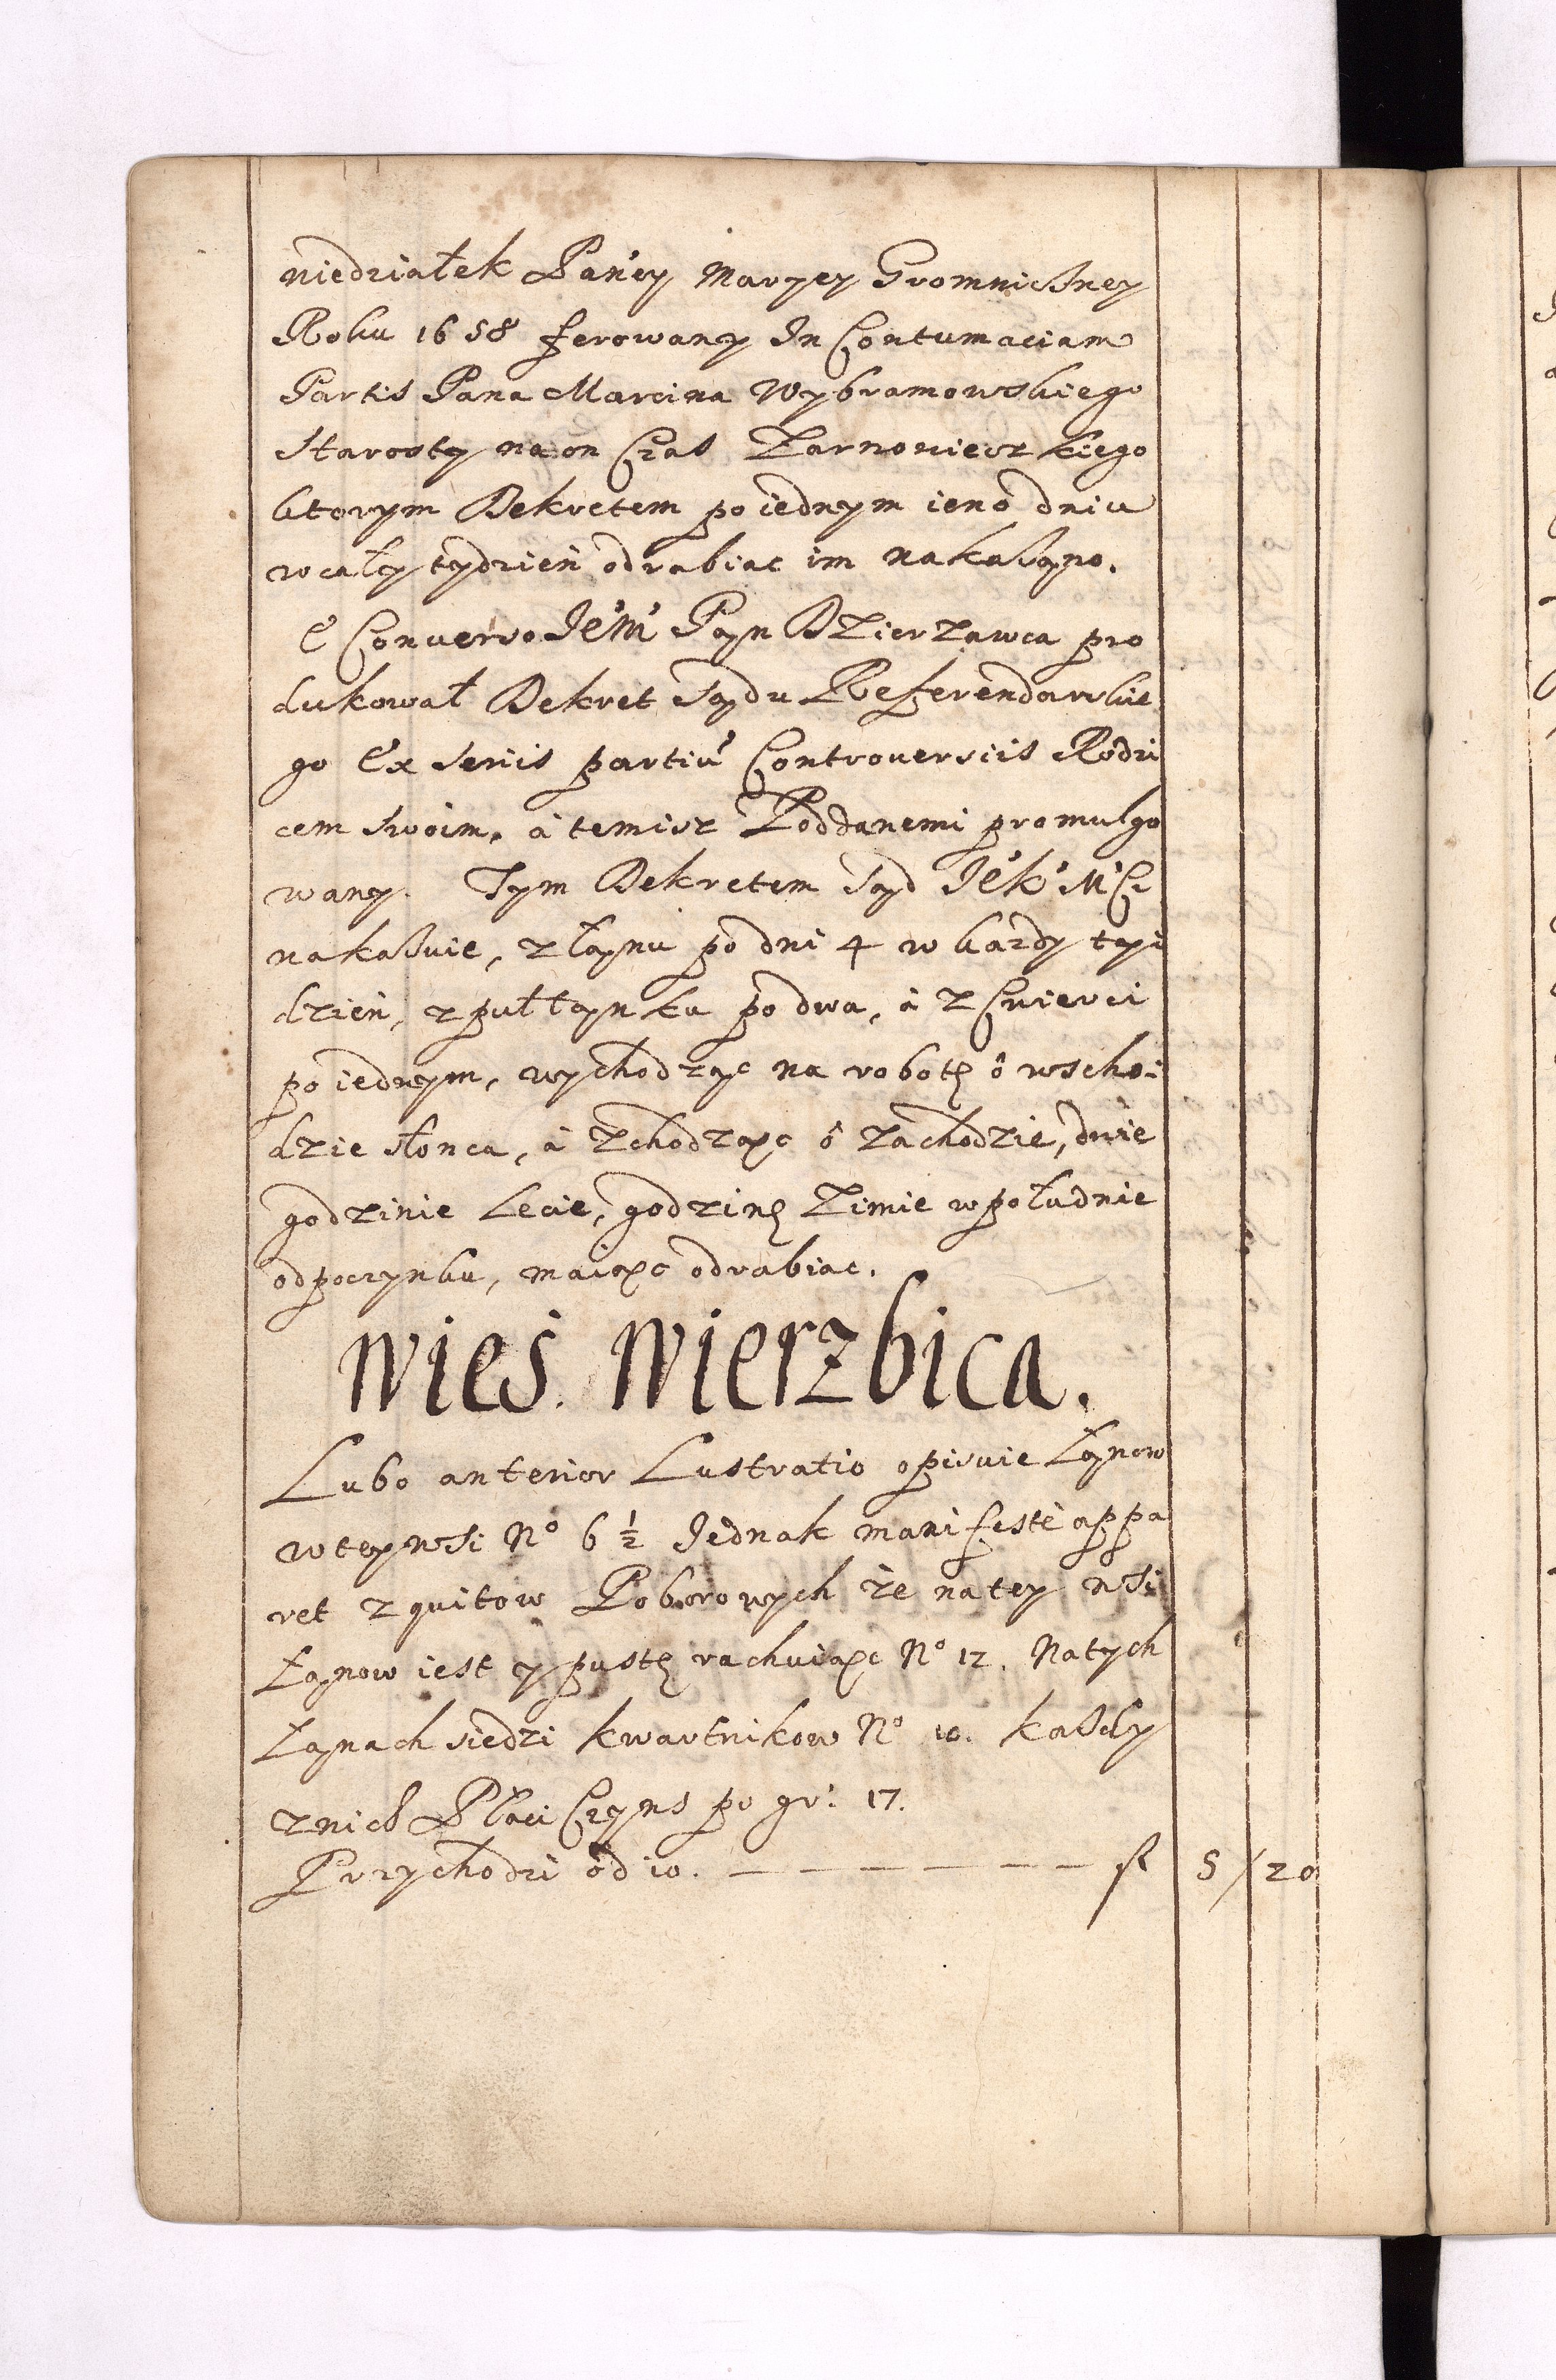 niedziałek Pańey Maryey Gromniczney
Roku 1658 ferowany In Contumaciam
Partis Pana Marcina Wybramowskiego
Starosty na on Czas Zarnowieczkiego
ktorym Dekretem po iednym ieno dniu
w cały tydzień odrabiac im nakaſano.
E Conuerso Je'M' Pąn Dzierzawca pro
dukował Dekret Sądu Referendarskie
go Ex seriis partiu' Controuersiis Rodzi
cem swoim, à temisz Poddanemi promulgo
wany. Tym Dekretem Sąd Je'k'M'Ci
nakaſuie, z łąnu po dni 4 w kazdy tyi
dzień, z puł łąnku po dwa, à z Cwierci
po iednym, wychodząc na robotę ô wscho:
dzie słonca, à Zchodząc ô Zachodzie, dwie
godzinie Lecie, godzinę Zimie w południe
odpoczynku, maiąc odrabiac.
Wieś Wierzbica.
Lubo anterior Lustratio opisuie Łąnow
w tey wſi No 6 ½ Jednak manifeste appa
ret z quitow Poborowych że na tey wſi
Łąnow iest y pustę rachuiąc No 12. Na tych
Łąnach siedzi kwartnikow No 10. kaſdy
z nich Płaci Czyns po gr: 17.
Przychodzi od 10. — — — — — — — fl 5 / 20